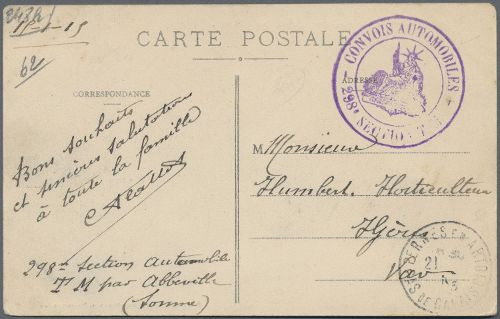 11-1-15
62
CARTE POSTALE
CORRESPONDANCE
ADRESSE
CONVOIS AUTOMOBILES
298e SECTION T.M
Bons souhaits
et sincères salutations
à toute la famille
298me Section Automobile
TM par Abbeville
(Somme)
M Monsieur
Humbert. Horticulteur
Hyères
Var
21